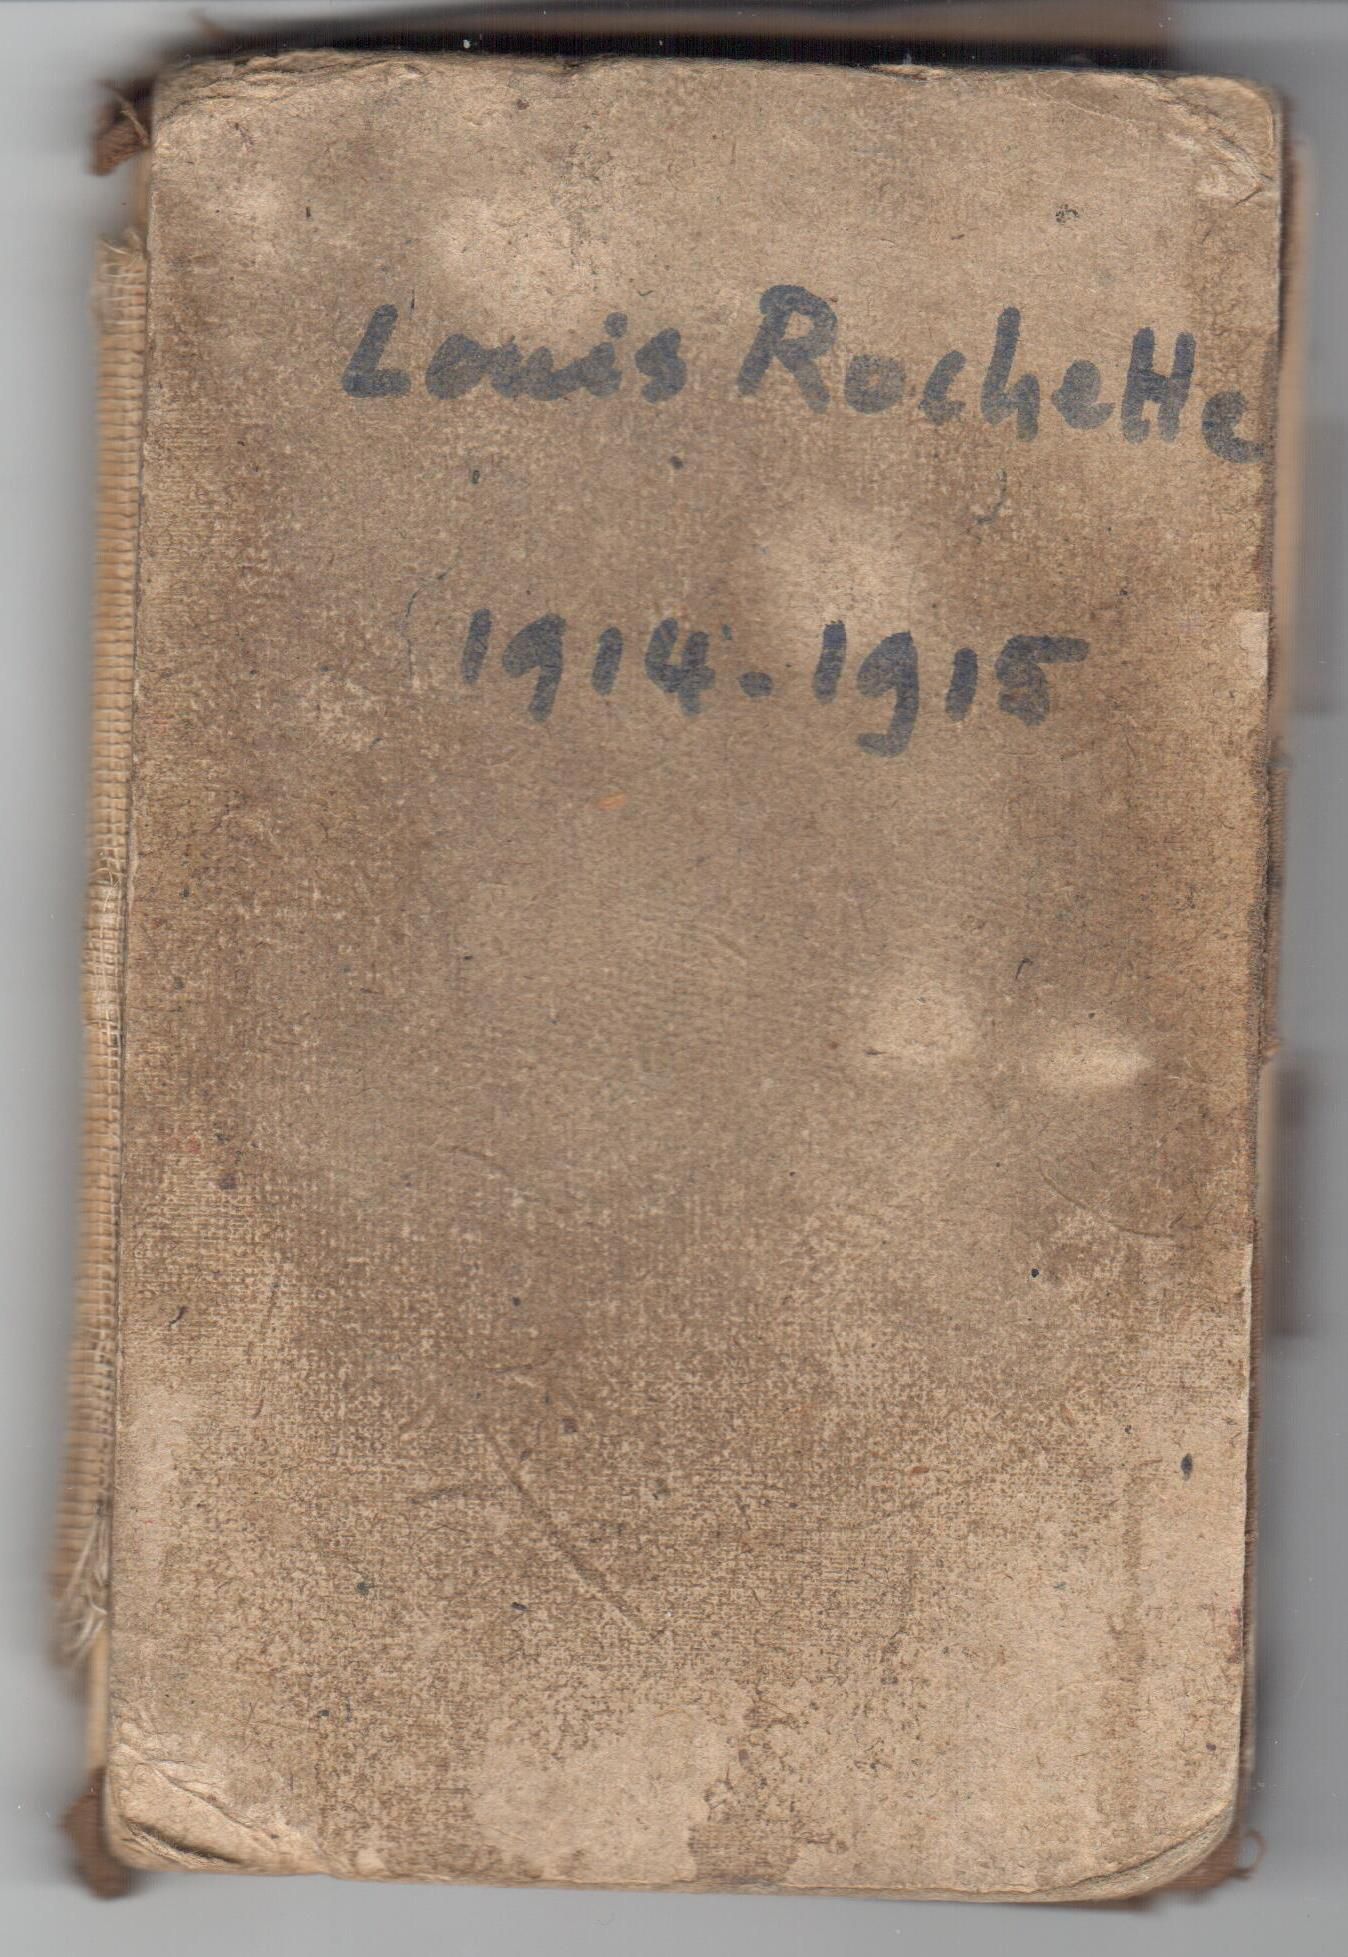 Louis Rochette
1914-1915